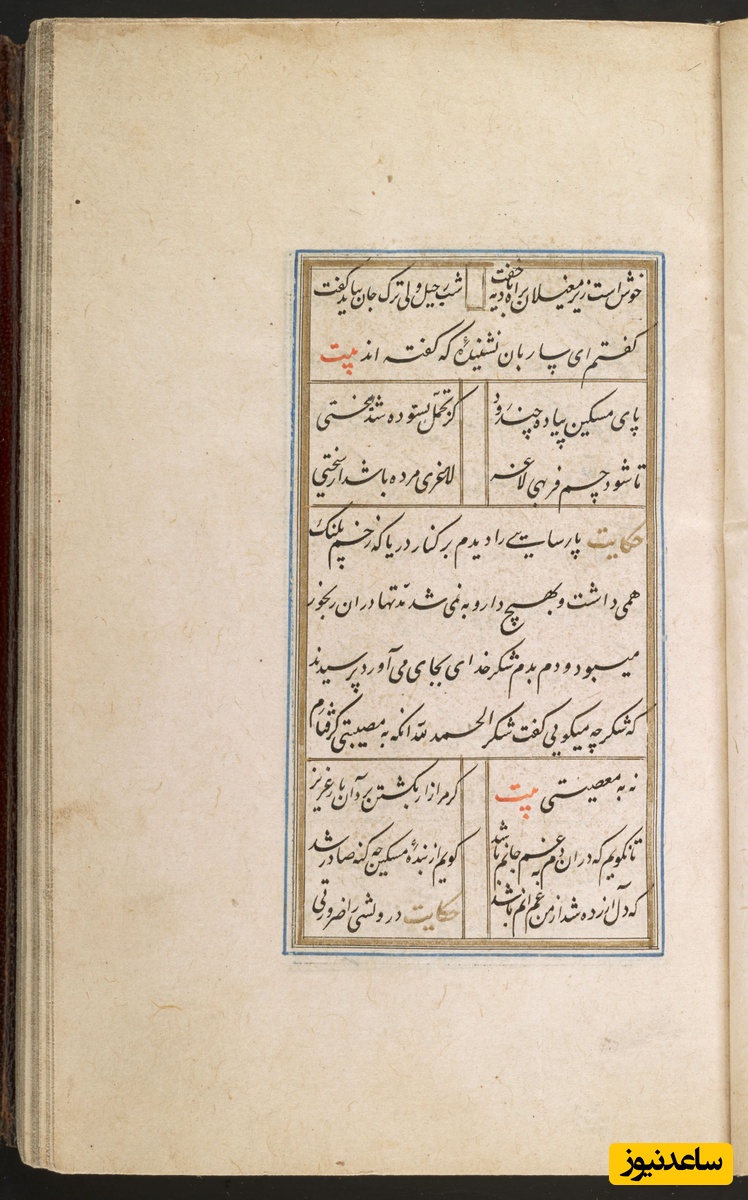 خوش است زیر مغیلان براه بادیه خفت شب رحیل ولی ترک جان بباید گفت
گفتم ای ساربان نشنیدهٔ که گفته اند بیت
پای مسکین پیاده چند رود کز تحمل ستوده شد بختی
تا شود جسم فربهی لاغر لاغری مرده باشد از سختی
حکایت پارسایی را دیدم بر کنار دریا که زخم پلنک
همی داشت و بهیچ دارو به نمی شد مدتها دران رنجور
میبود و دم بدم شکر خدای بجای می آورد پرسیدند
که شکر چه میکویی گفت شکر الحمد لله انکه به مصیبتی گرفتارم
نه به معصیتی بیت کرم ازار بکشتن بر دآن یار عزیز
تا نکویم که دران دم غم جانم باشد کویم از بندهٔ مسکین چه کنه صادر شد
که دل ازرده شد از من غم انم باشد حکایت درویشی را ضرورتی
ساعدنیوز